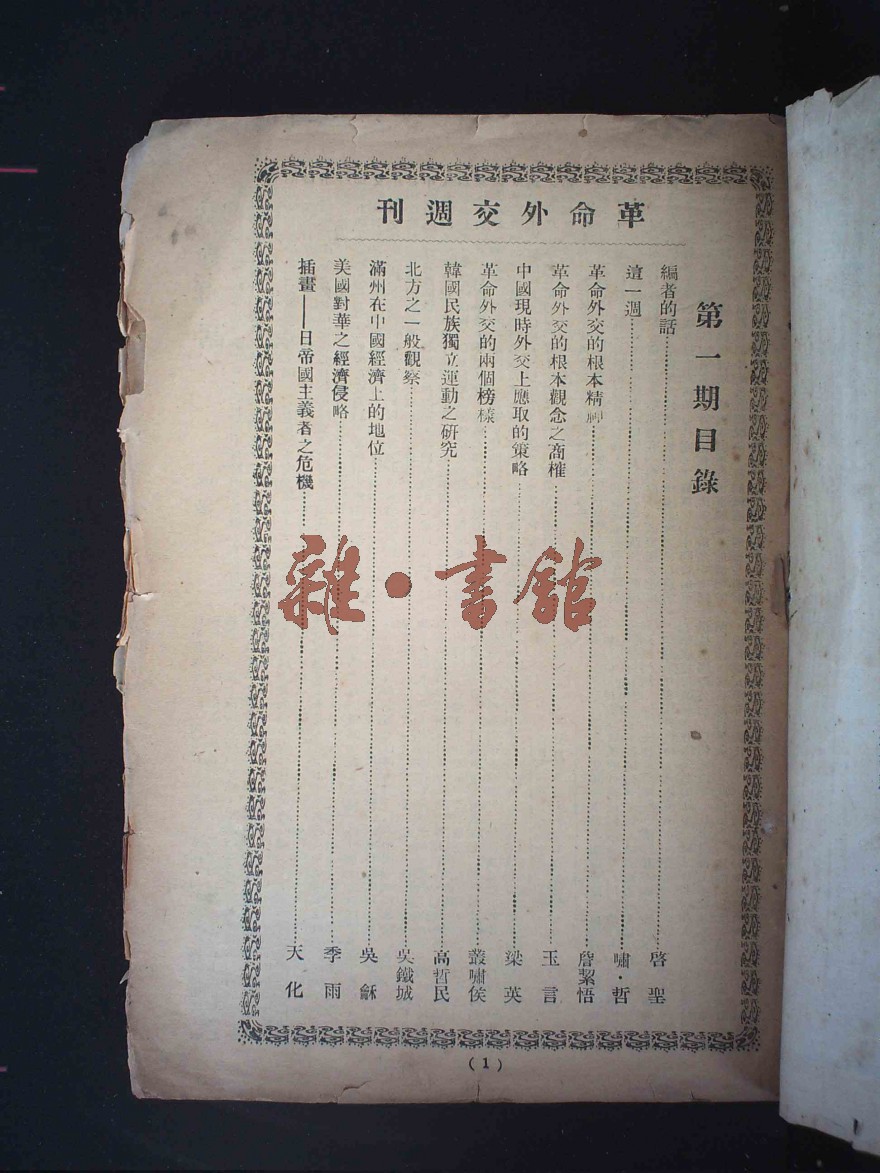 革命外交週刊
第一期目錄
編者的話……啓聖
這一週……嘯・哲
革命外交的根本精神……詹絜悟
革命外交的根本觀念之商榷……玉言
中國現時外交上應取的策略……梁英
革命外交的兩個榜樣……叢嘯侯
韓國民族獨立運動之研究……高哲民
北方之一般觀察……吳鐵城
滿州在中國經濟上的地位……吳龢
美國對華之經濟侵略……季雨
插畫——日帝國主義者之危機……天化
雜・書館
(1)